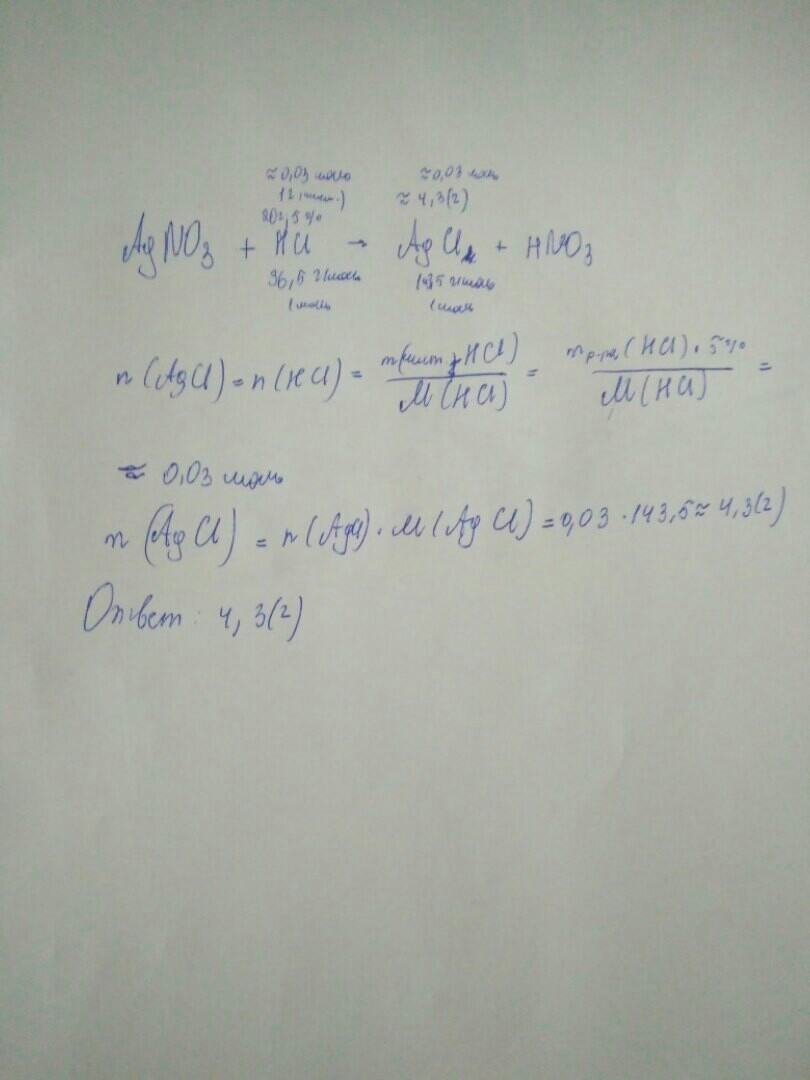 ≈0,03 моль ≈0,03 моль
1г ≈ 4,3(г)
20г, 5%
AgNO₃ + HCl → AgCl↓ + HNO₃
36,5 г/моль 143,5 г/моль
1 моль 1 моль
n(AgCl) = n(HCl) = m(чист. HCl) / M(HCl) = m р-ра (HCl) · 5% / M(HCl) =
≈ 0,03 моль
m(AgCl) = n(AgCl) · M(AgCl) = 0,03 · 143,5 ≈ 4,3(г)
Ответ: 4,3(г)